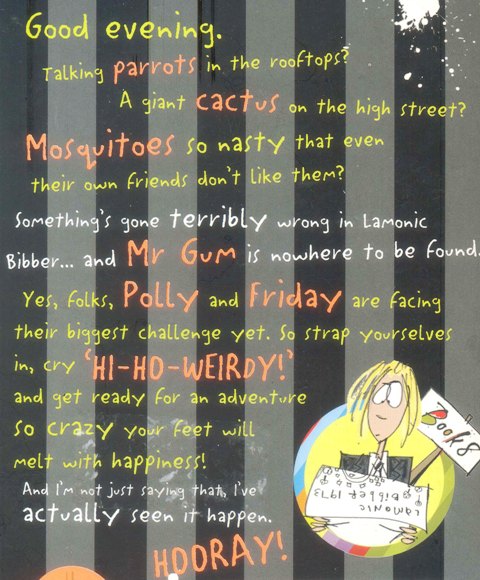 Good evening.
Talking parrots in the rooftops?
A giant cactus on the high street?
Mosquitoes so nasty that even
their own friends don't like them?
Something's gone terribly wrong in Lamonic
Bibber... and Mr Gum is nowhere to be found.
Yes, folks, Polly and Friday are facing
their biggest challenge yet. So strap yourselves
in, cry 'HI-HO-WEIRDY!'
and get ready for an adventure
so crazy your feet will
melt with happiness!
And I'm not just saying that, I've
actually seen it happen.
HOORAY!
Books
LAMONIC
BIBBER 1973